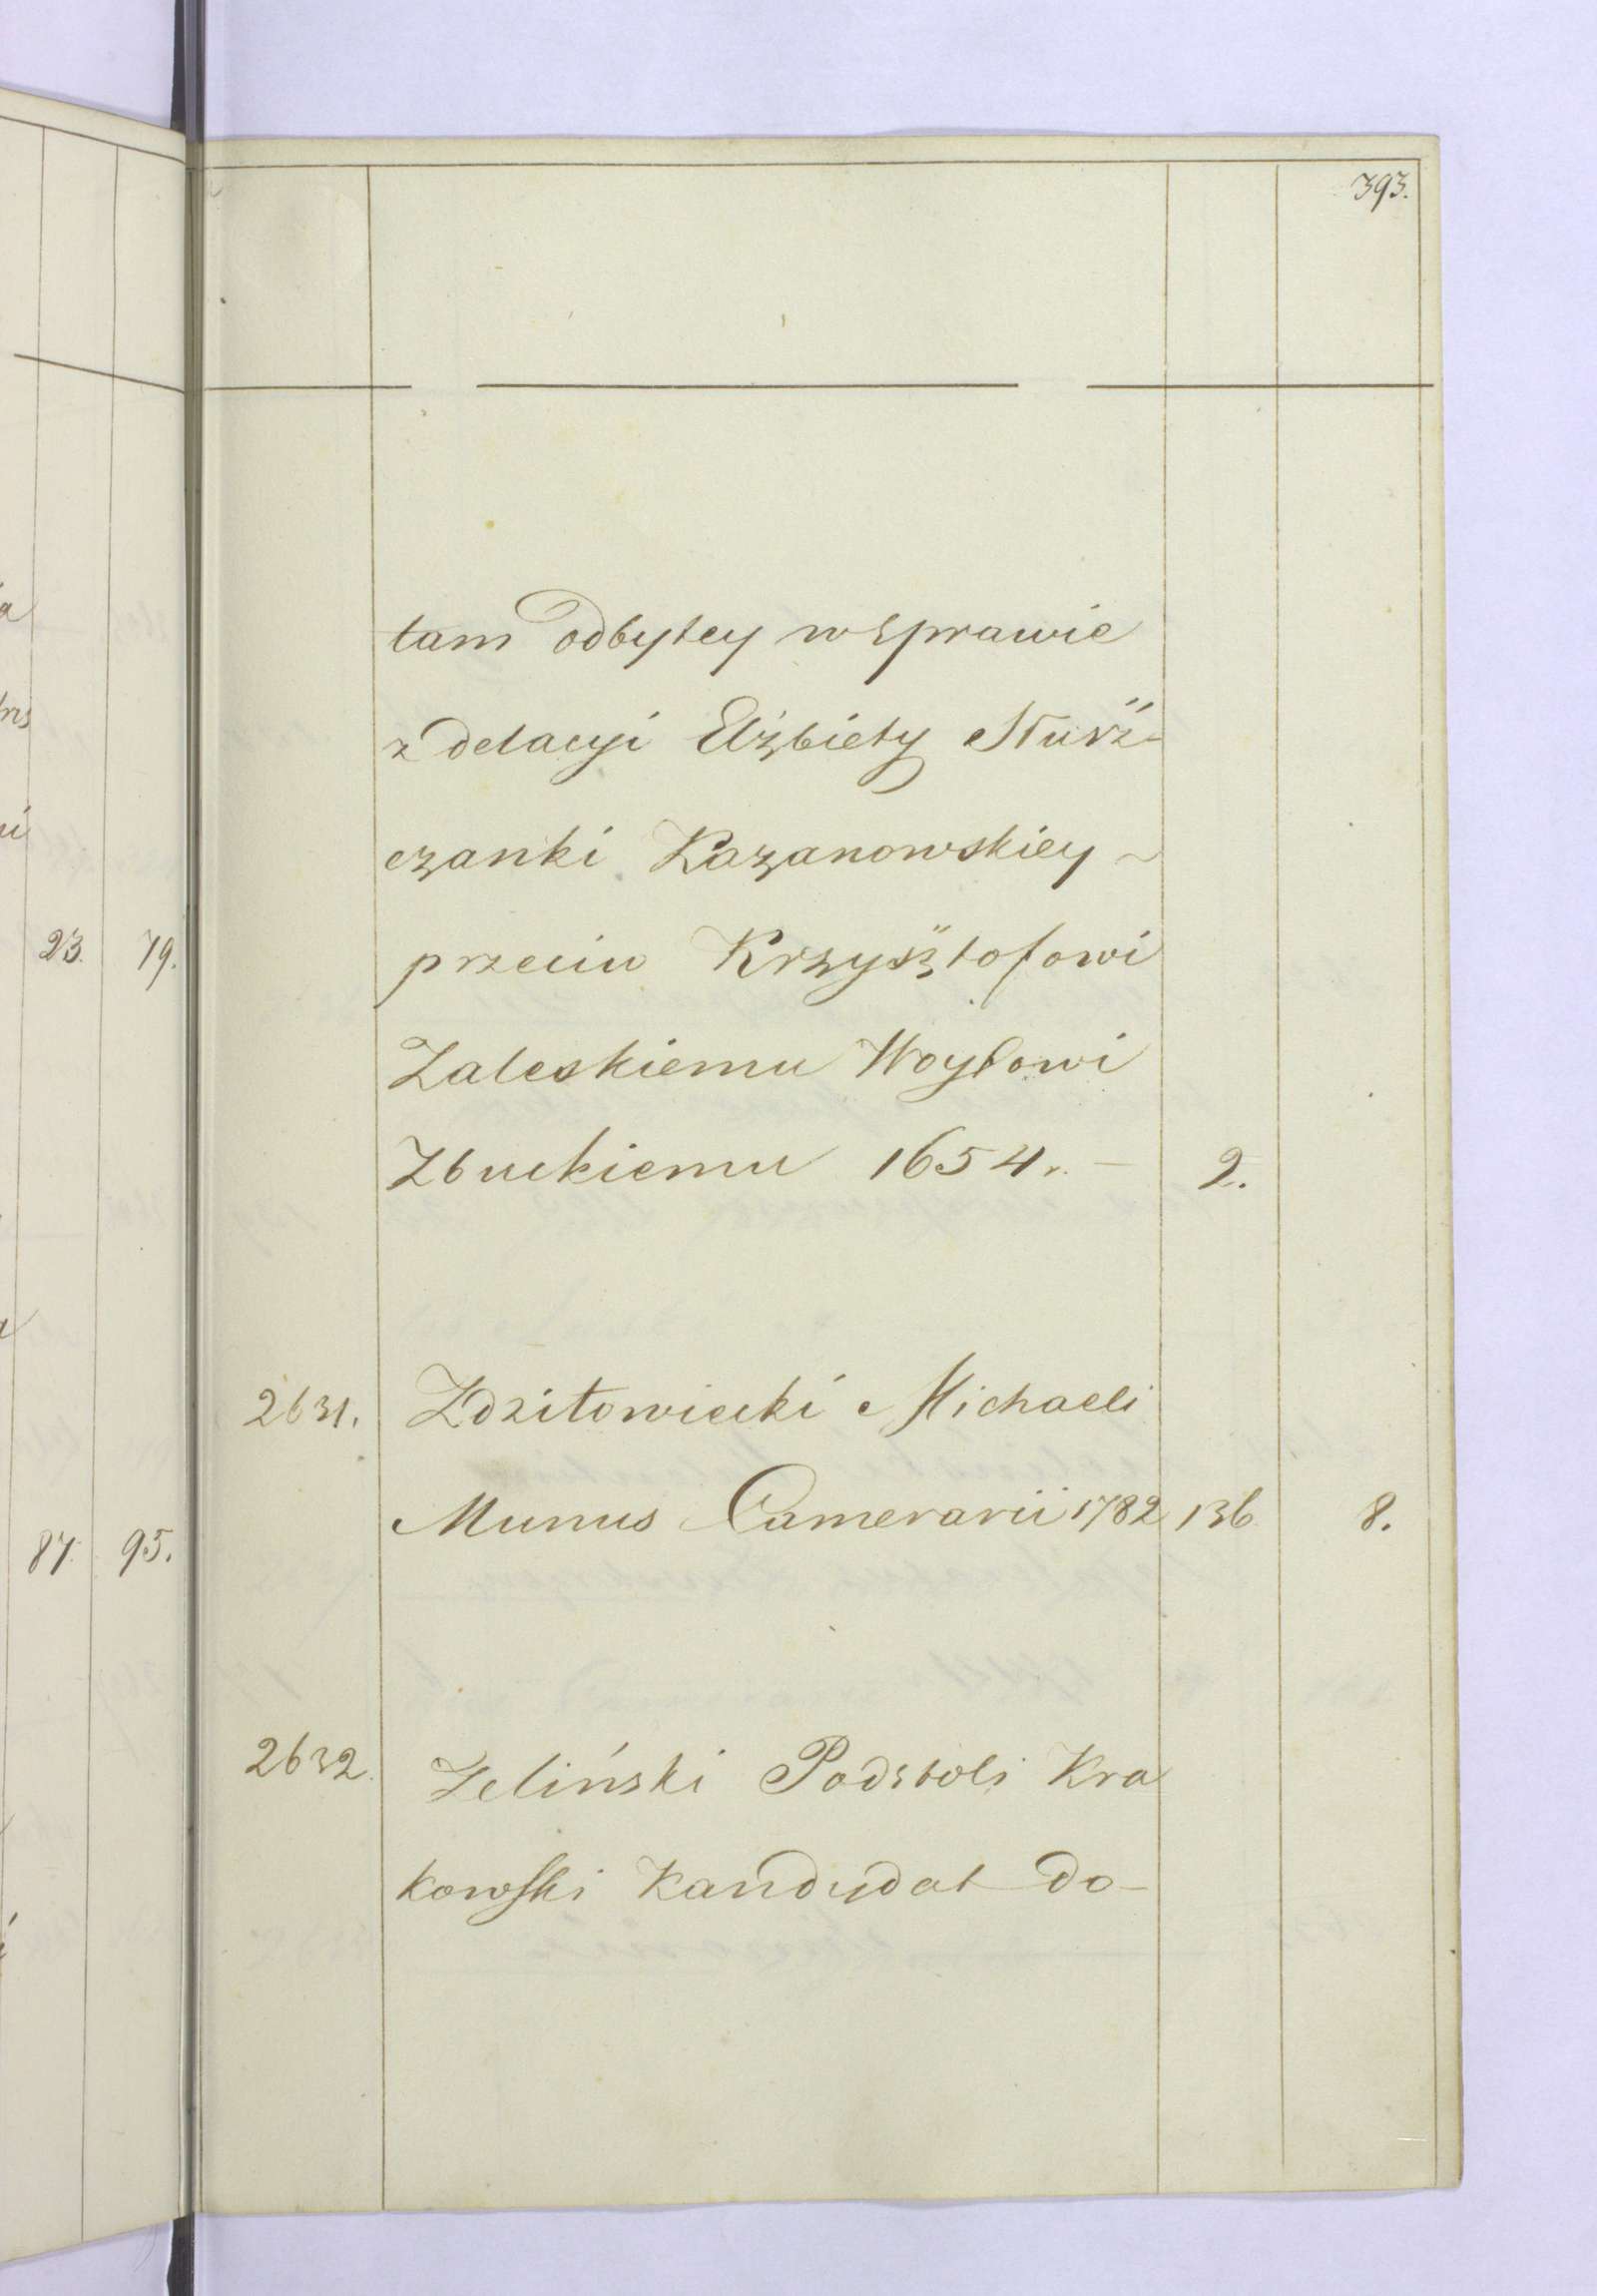 393.
tam odbytey w sprawie
z delacyi Elżbiety Słusz-
czanki Kazanowskiey ~
przeciw Krzysztofowi
Zaleskiemu Woytowi
Zbuckiemu 1654. — 2.
2631. Zdzitowiecki Michaeli
Munus Camerarii 1782 136 8.
2632. Zeliński Podstoli Kra
kowski Kandydat do-
23. 79.
87. 95.